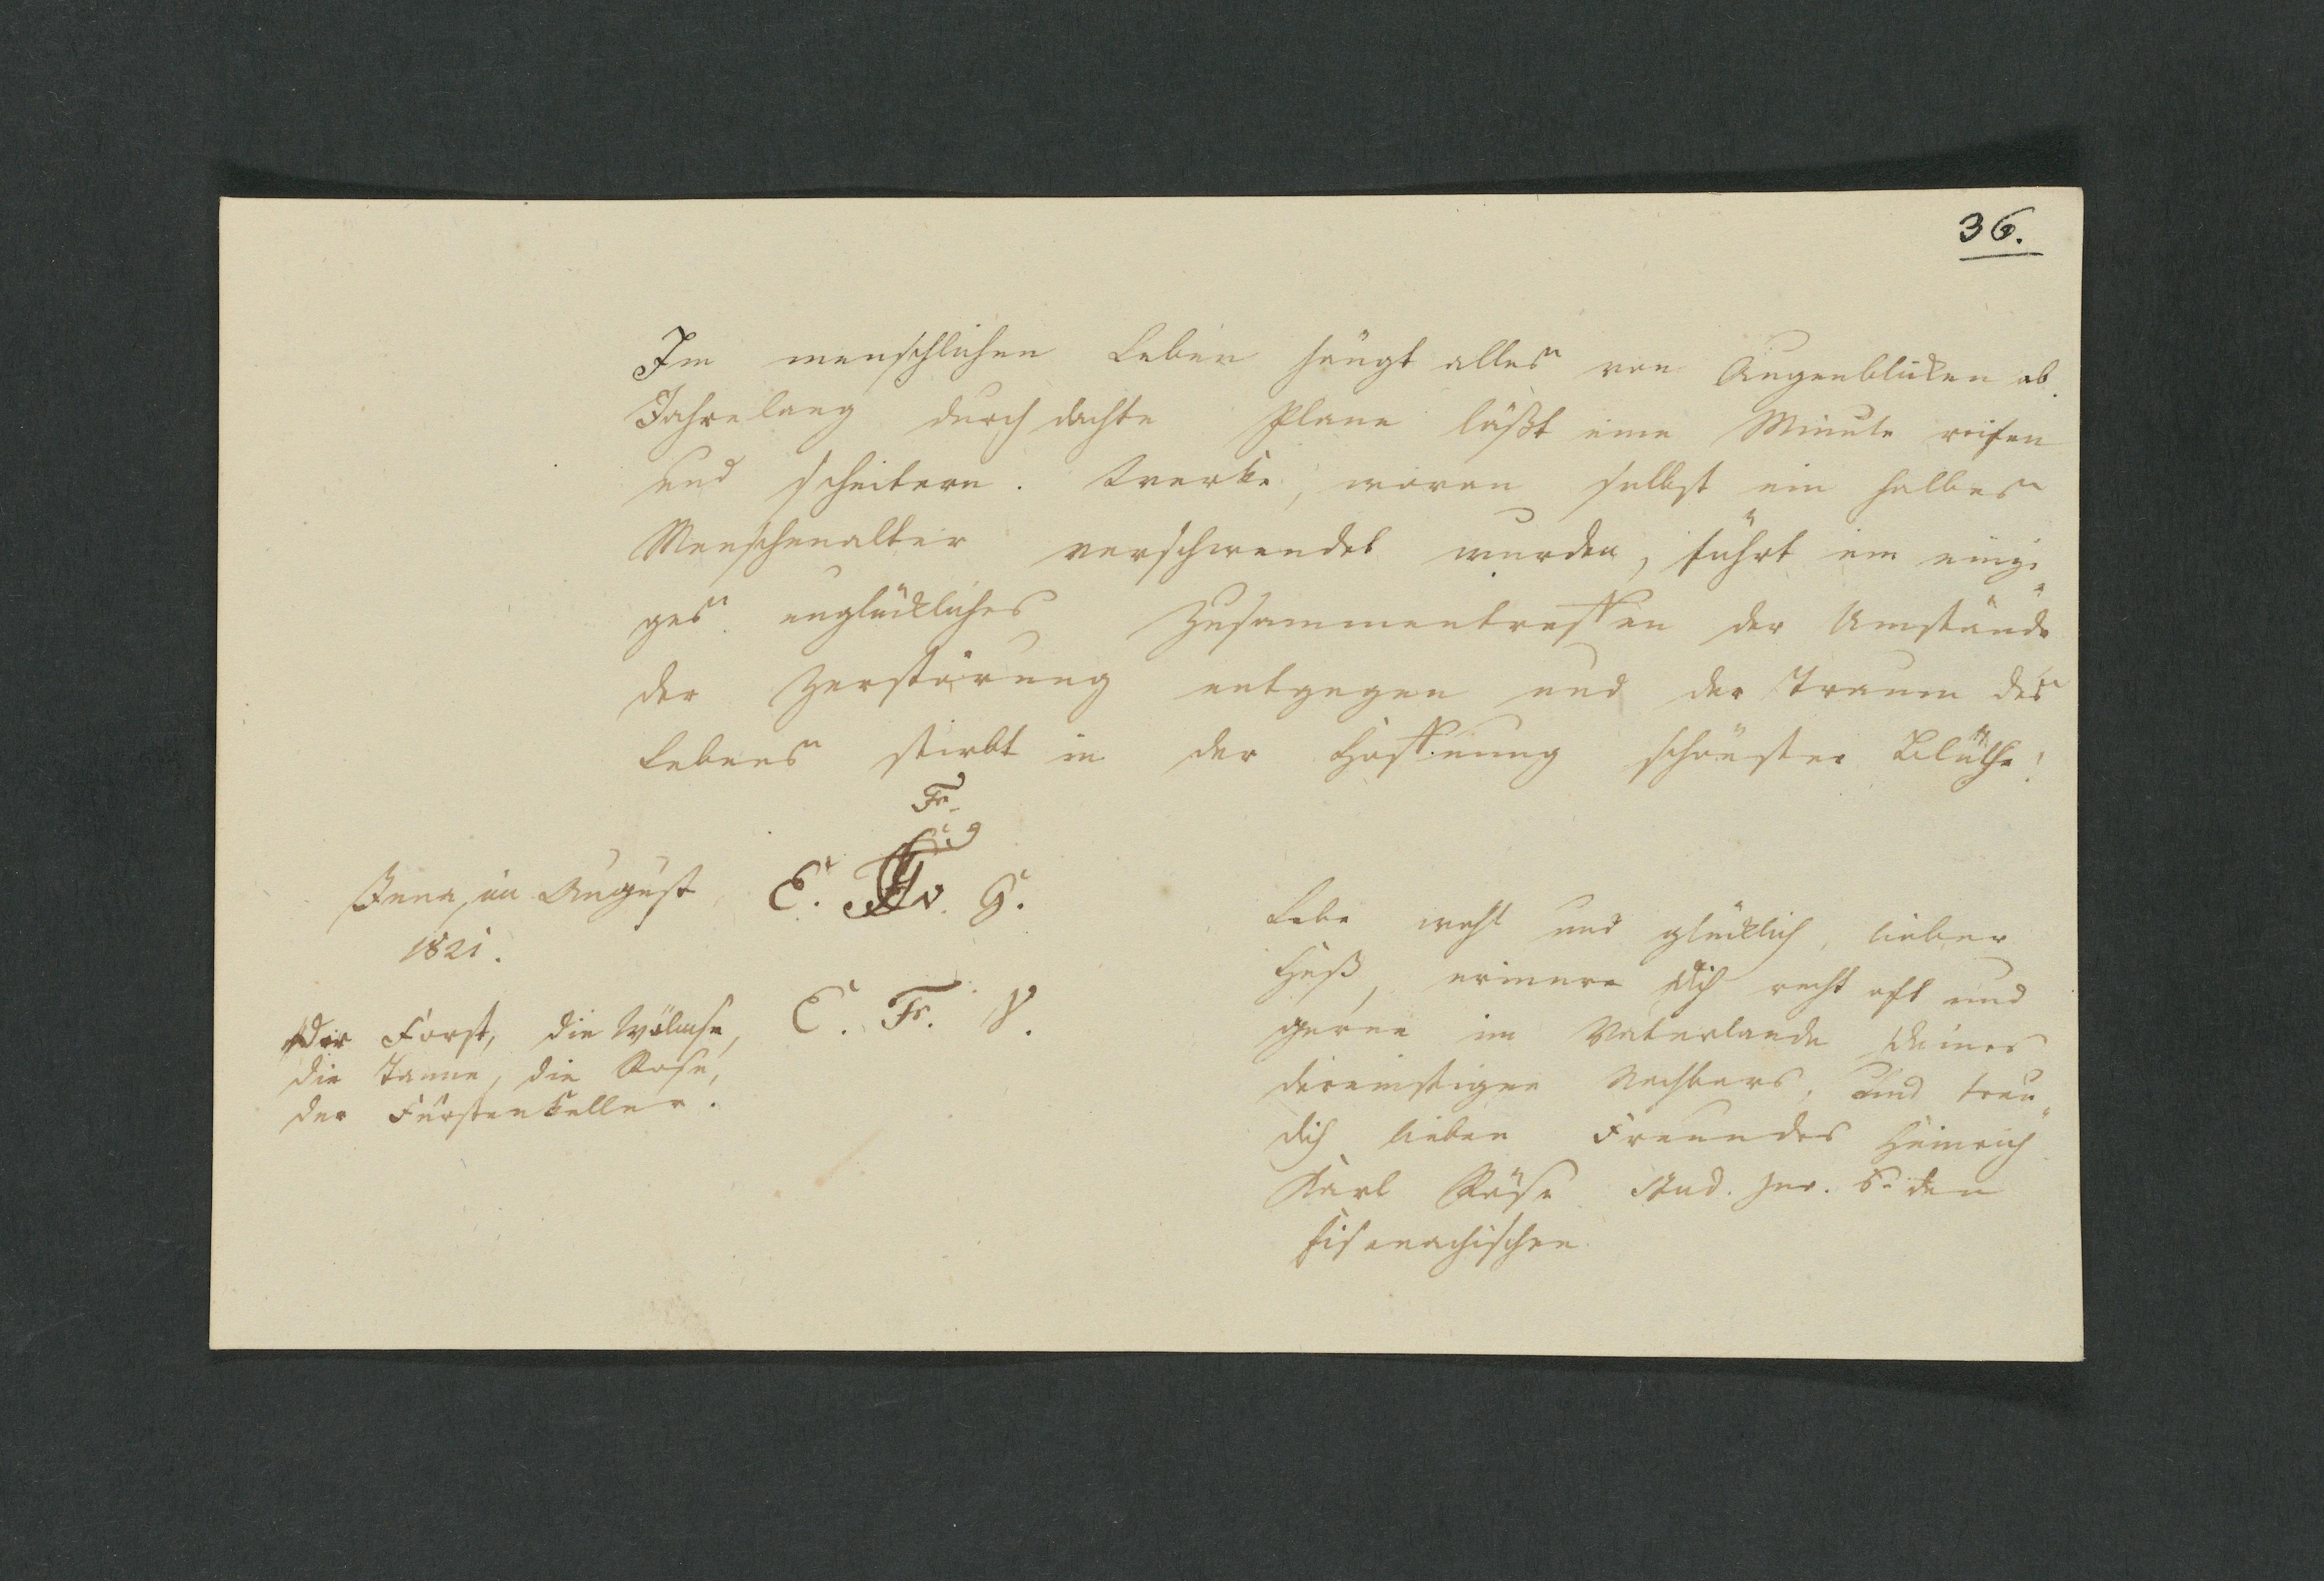 36.
Im menschlichen Leben hängt alles von Augenblicken ab.
Jahrelang durchdachte Plane läßt eine Minute reifen
und scheitern. Werke, woran selbst ein halbes
Menschenalter verschwendet wurden, führt ein einzi-
ges unglückliches Zusammentreffen der Umstände
der Zerstörung entgegen und der Traum des
Lebens stirbt in der Hoffnung schönster Blüthe!
Jena, im August
1821.
Fr.
E. G.
E. Fr. V.
Der Forst, die Wölmse,
die Tanne, die Rose,
der Fürstenkeller.
Lebe wohl und glücklich, lieber
Heß, erinnre Dich recht oft und
gerne im Vaterlande Deines
dereinstigen Nachbars, und treu
dich lieben Freundes Heinrich
Karl Röse Stud. Jur. den
Eisenachischen